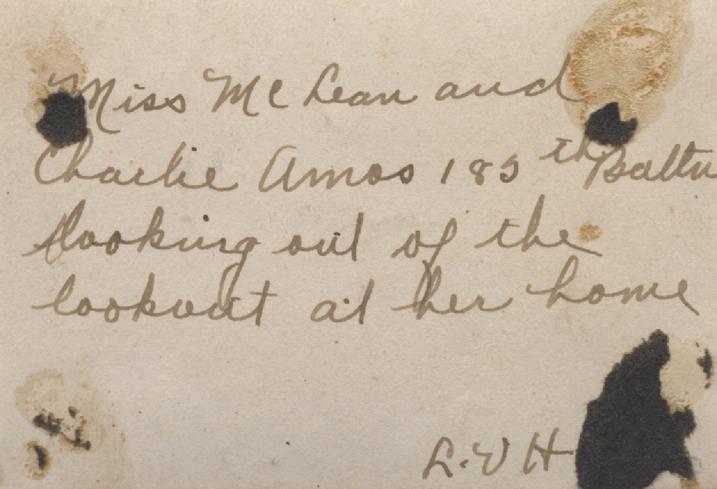 Miss McLean and
Charlie Amos 185th Battn
looking out of the
lookout at her home
L.V H